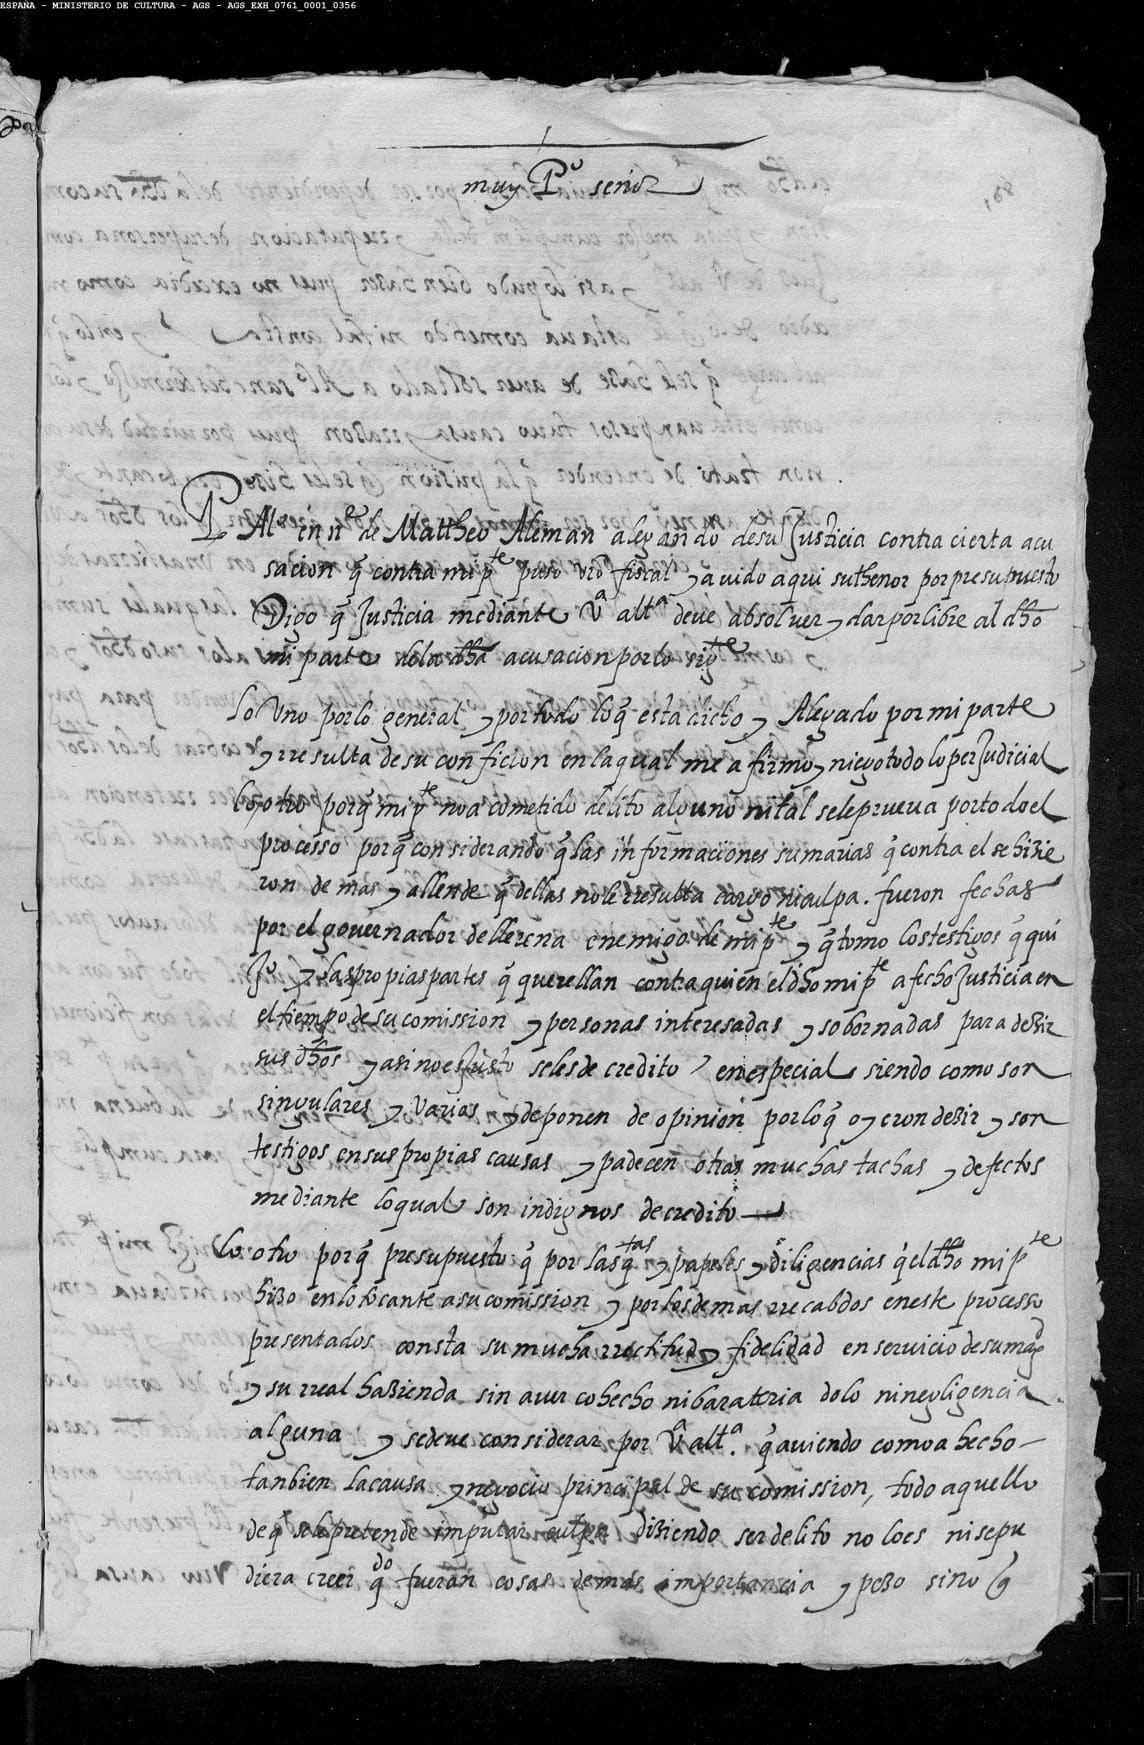 ESPAÑA - MINISTERIO DE CULTURA - AGS - AGS_EXH_0761_0001_0356
muy P.º señor
P. Al.º en n.e de Mattheo Aleman alegando de su Justicia contra cierta acu
sacion q̃ contra mi p.te puso vr̃o fiscal y avido aqui su thenor por presupuesto
Digo q̃ Justicia mediante V.ª alt.ª deve absolver y dar por libre al dh̃o
mi parte de la dh̃a acusacion por lo sig.te
lo Uno por lo general y por todo lo q̃ esta dicho y Alegado por mi parte
y rresulta de su conficion en la qual me afirmo y niego todo lo perJudicial
lo otro porq̃ mi p.te no a cometido delito alguno ni tal se le prueva por todo el
processo porq̃ considerando q̃ las informaciones sumarias q̃ contra el se hizie
ron de mas y allende q̃ dellas no le rresulta cargo ni culpa. fueron fechas
por el governador de llerena enemigo de mi p.te y q̃ tomo los testigos q̃ qui
so y las propias partes q̃ querellan contra quien el dh̃o mi p.te a fecho Justicia en
el tiempo de su comission y personas interesadas y sobornadas para dezir
sus dh̃os y asi no es Justo se les de credito / en especial siendo como son
singulares y varios y deponen de opinion por lo q̃ oyeron dezir y son
testigos en sus propias causas y padecen otras muchas tachas y defectos
mediante lo qual son indignos de credito
lo otro porq̃ presupuesto q̃ por las q.tas y papeles y diligencias q̃ el dh̃o mi p.te
hizo en lo tocante a su comission y por los demas rrecabdos en este processo
presentados consta su mucha rrectitud y fidelidad en servicio de su mag.d
y su rreal hazienda sin aver cohecho ni barateria dolo ni negligencia
alguna y se deve considerar por V.ª alt.ª q̃ aviendo como a hecho
tanbien la causa y negocio principal de su comission, todo aquello
de q̃ se le pretende imputar culpa diziendo ser delito no lo es ni se pu
diera creer q.do fueran cosas de mas importancia y pezo sino q̃